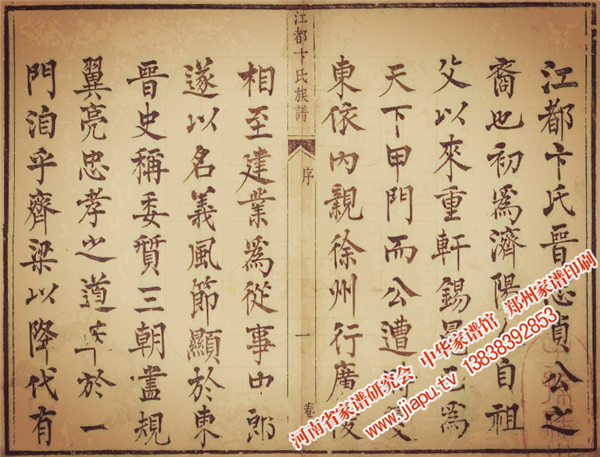 江都卞氏晉忠貞公之
裔也初爲濟陽自祖
父以來重軒錫冕已爲
天下甲門而公遭
東依内親徐州行廣
江都卞氏族譜
序
一
卷
相至建業爲從事中郎
遂以名義風節顯於東
晉史稱委質三朝盡規
翼亮忠孝之道萃於一
門洎乎齊梁以降代有
河南省家谱研究会 中华家谱馆 郑州家谱印刷
www.jiapu.tv 13838392853